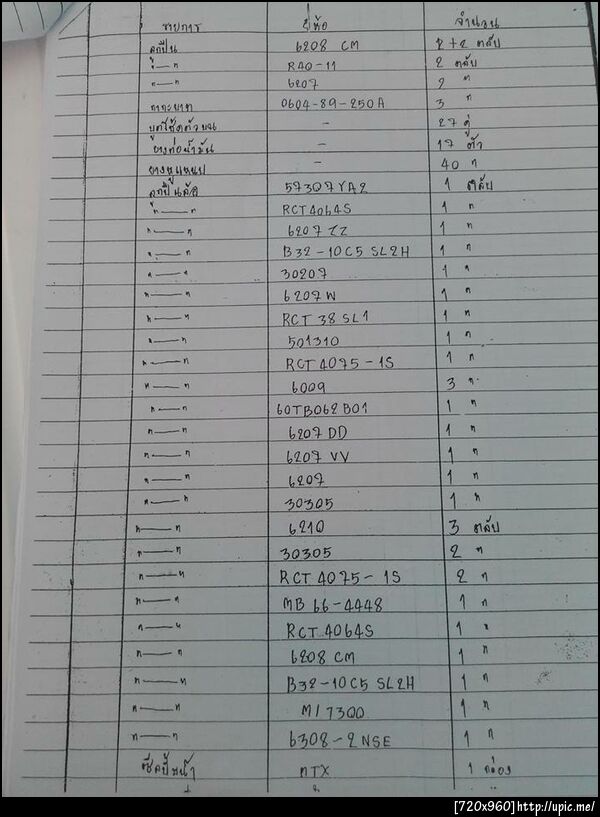 รายการ ยี่ห้อ จำนวน
ลูกปืน 6208 CM 2+2 ตลับ
"—" R40-11 2 ตลับ
"—" 6207 2 "
0604-89-250A 3 "
- 27 คู่
ยางท่อน้ำมัน - 17 ตัว
ยางหูแหนบ - 40 "
ลูกปืนล้อ 57307YA2 1 ตลับ
"—" RCT4064S 1 "
"—" 6207 ZZ 1 "
"—" B32-10C5 SL2H 1 "
"—" 30207 1 "
"—" 6207 W 1 "
"—" RCT 38 SL1 1 "
"—" 501310 1 "
"—" RCT 4075-1S 1 "
"—" 6009 3 "
"—" 60TB062B01 1 "
"—" 6207 DD 1 "
"—" 6207 VV 1 "
"—" 6207 1 "
"—" 30305 1 "
"—" 6210 3 ตลับ
"—" 30305 2 "
"—" RCT 4075-1S 2 "
"—" MB 66-4448 1 "
"—" RCT 4064S 1 "
"—" 6208 CM 1 "
"—" B32-10C5 SL2H 1 "
"—" MI7300 1 "
"—" 6308-2NSE 1 "
MTX 1 กล่อง
[720x960]http://upic.me/